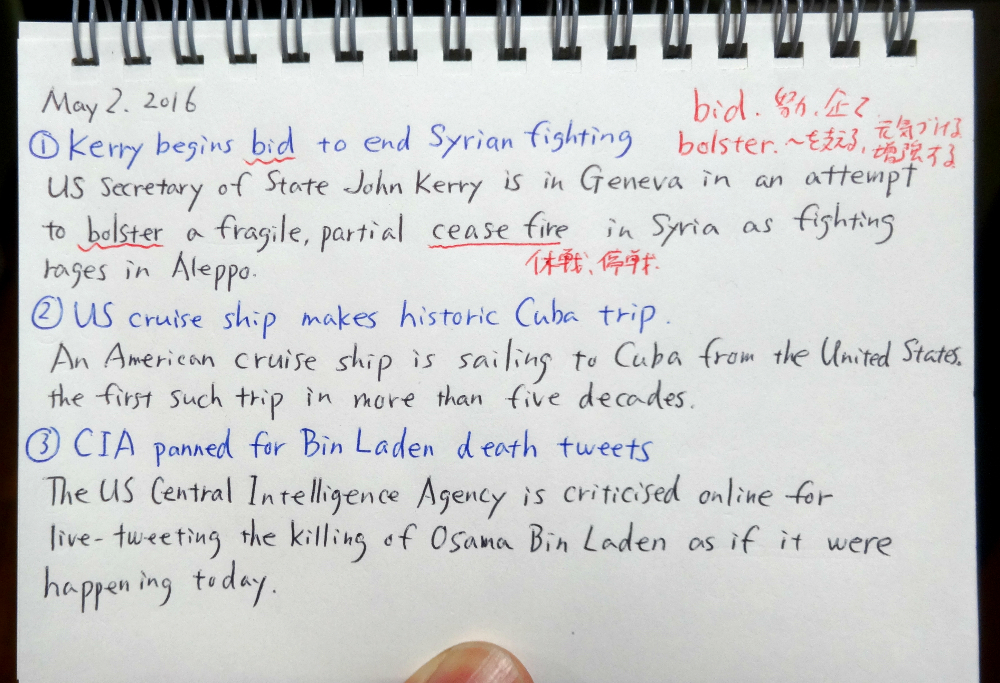 May 2. 2016
bid. 努力、企て
bolster. 〜を支える, 元気づける
増強する
① Kerry begins bid to end Syrian fighting
US Secretary of State John Kerry is in Geneva in an attempt
to bolster a fragile, partial cease fire in Syria as fighting
休戦、停戦.
rages in Aleppo.
② US cruise ship makes historic Cuba trip.
An American cruise ship is sailing to Cuba from the United States.
the first such trip in more than five decades.
③ CIA panned for Bin Laden death tweets
The US Central Intelligence Agency is criticised online for
live-tweeting the killing of Osama Bin Laden as if it were
happening today.